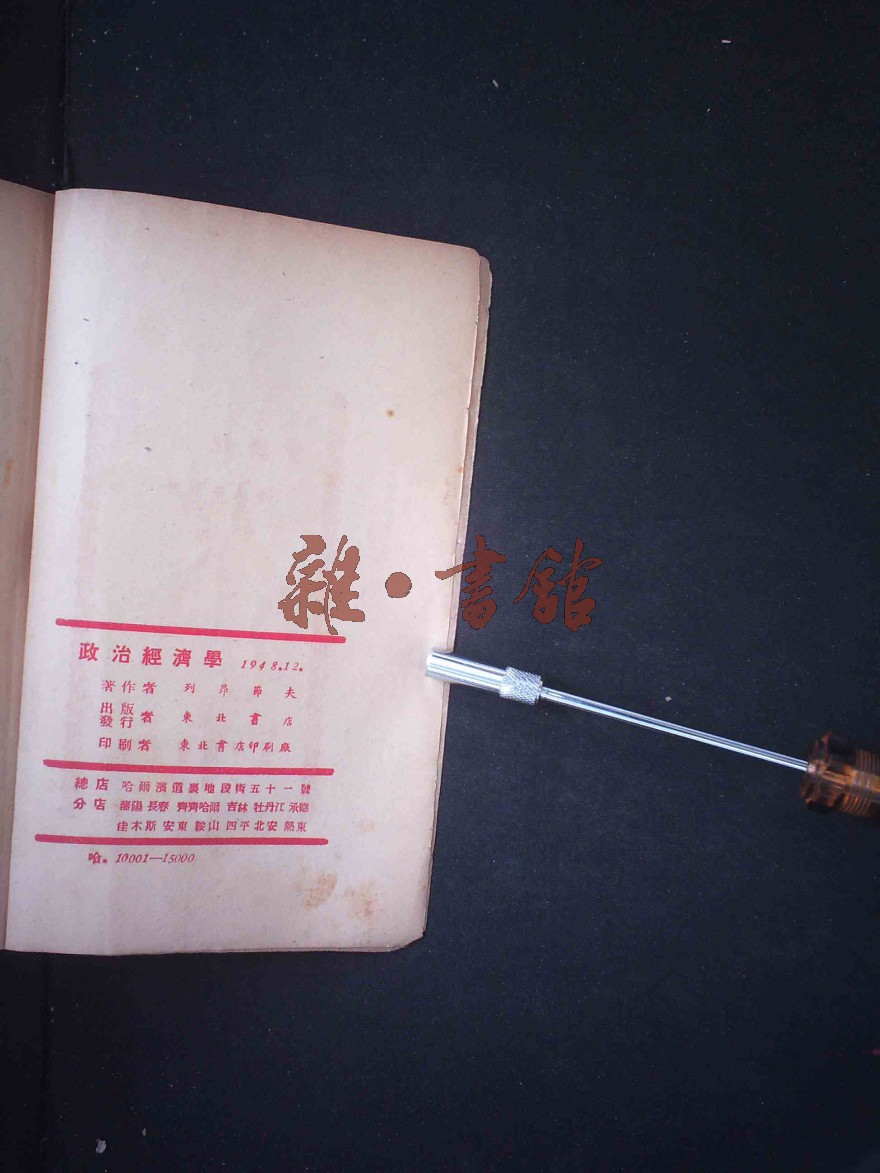 雜·書館
政治經濟學 1948.12.
著作者 列昂節夫
出版
發行者 東北書店
印刷者 東北書店印刷廠
總店 哈爾濱道裏地段街五十一號
分店 瀋陽 長春 齊齊哈爾 吉林 牡丹江 承德
佳木斯 安東 鞍山 四平 北安 熱東
哈。10001—15000